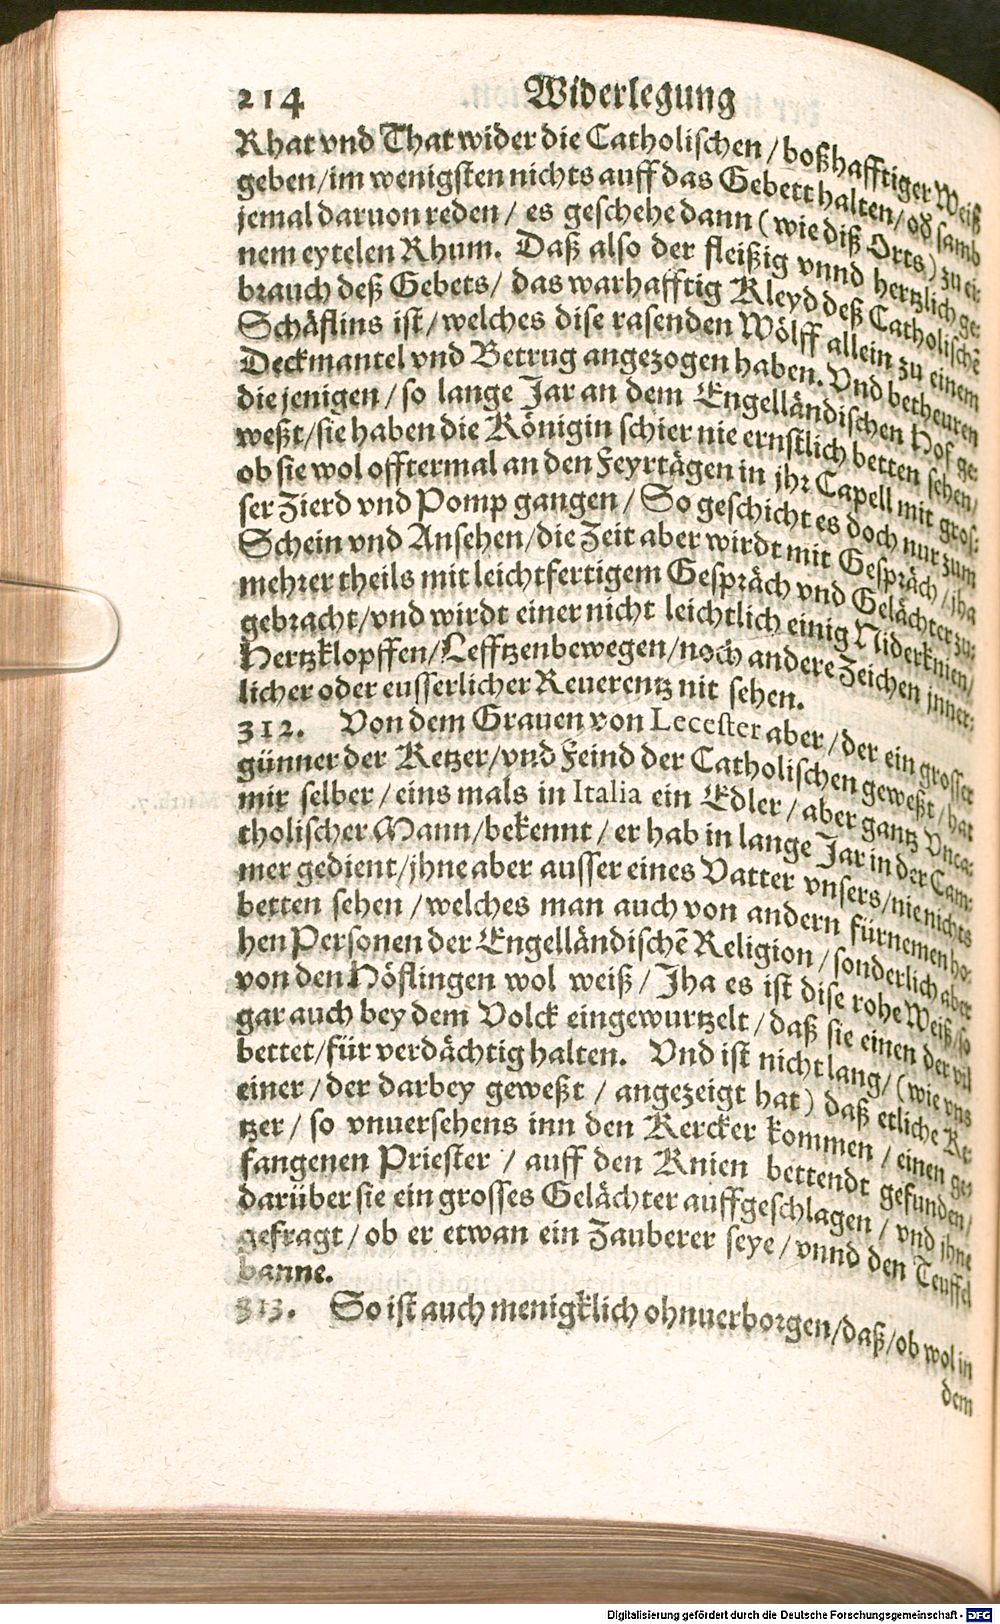 214 Widerlegung
Rhat vnd That wider die Catholischen / boßhafftiger Weiß
geben/im wenigsten nichts auff das Gebett halten/ od̕ samb
jemal daruon reden / es geschehe dann (wie diß Orts) zu ei⸗
nem eytelen Rhum. Daß also der fleißig vnnd hertzlich ge⸗
brauch deß Gebets/ das warhafftig Kleyd deß Catholischē
Schäflins ist/welches dise rasenden Wölff allein zu einem
Deckmantel vnd Betrug angezogen haben. Vnd betheuren
die jenigen / so lange Jar an dem Engelländischen Hof ge⸗
weßt/sie haben die Königin schier nie ernstlich betten sehen/
ob sie wol offtermal an den Feyrtägen in jhr Capell mit gros⸗
ser Zierd vnd Pomp gangen / So geschicht es doch nur zum
Schein vnd Ansehen/die Zeit aber wirdt mit Gespräch / jha
mehrer theils mit leichtfertigem Gespräch vnd Gelächter zu⸗
gebracht/vnd wirdt einer nicht leichtlich einig Niderknien/
Hertzklopffen/Lefftzenbewegen/noch andere Zeichen jnner⸗
licher oder eusserlicher Reuerentz nit sehen.
312. Von dem Grauen von Lecester aber / der ein grosser
günner der Ketzer/vnd Feind der Catholischen geweßt / hat
mir selber / eins mals in Italia ein Edler / aber gantz Vnca⸗
tholischer Mann/bekennt / er hab in lange Jar in der Cam⸗
mer gedient/jhne aber ausser eines Vatter vnsers/nie nichts
betten sehen / welches man auch von andern fürnemen ho⸗
hen Personen der Engelländischē Religion / sonderlich aber
von den Höflingen wol weiß / Jha es ist dise rohe Weiß/so
gar auch bey dem Volck eingewurtzelt / daß sie einen der vil
bettet/für verdächtig halten. Vnd ist nicht lang/ (wie vns
einer / der darbey geweßt / angezeigt hat) daß etliche Ke⸗
tzer / so vnuersehens inn den Kercker kommen / einen ge⸗
fangenen Priester / auff den Knien bettendt gefunden/
darüber sie ein grosses Gelächter auffgeschlagen / vnd jhne
gefragt / ob er etwan ein Zauberer seye / vnnd den Teuffel
banne.
313. So ist auch menigklich ohnuerborgen/daß/ob wol in
dem
Digitalisierung gefördert durch die Deutsche Forschungsgemeinschaft - DFG